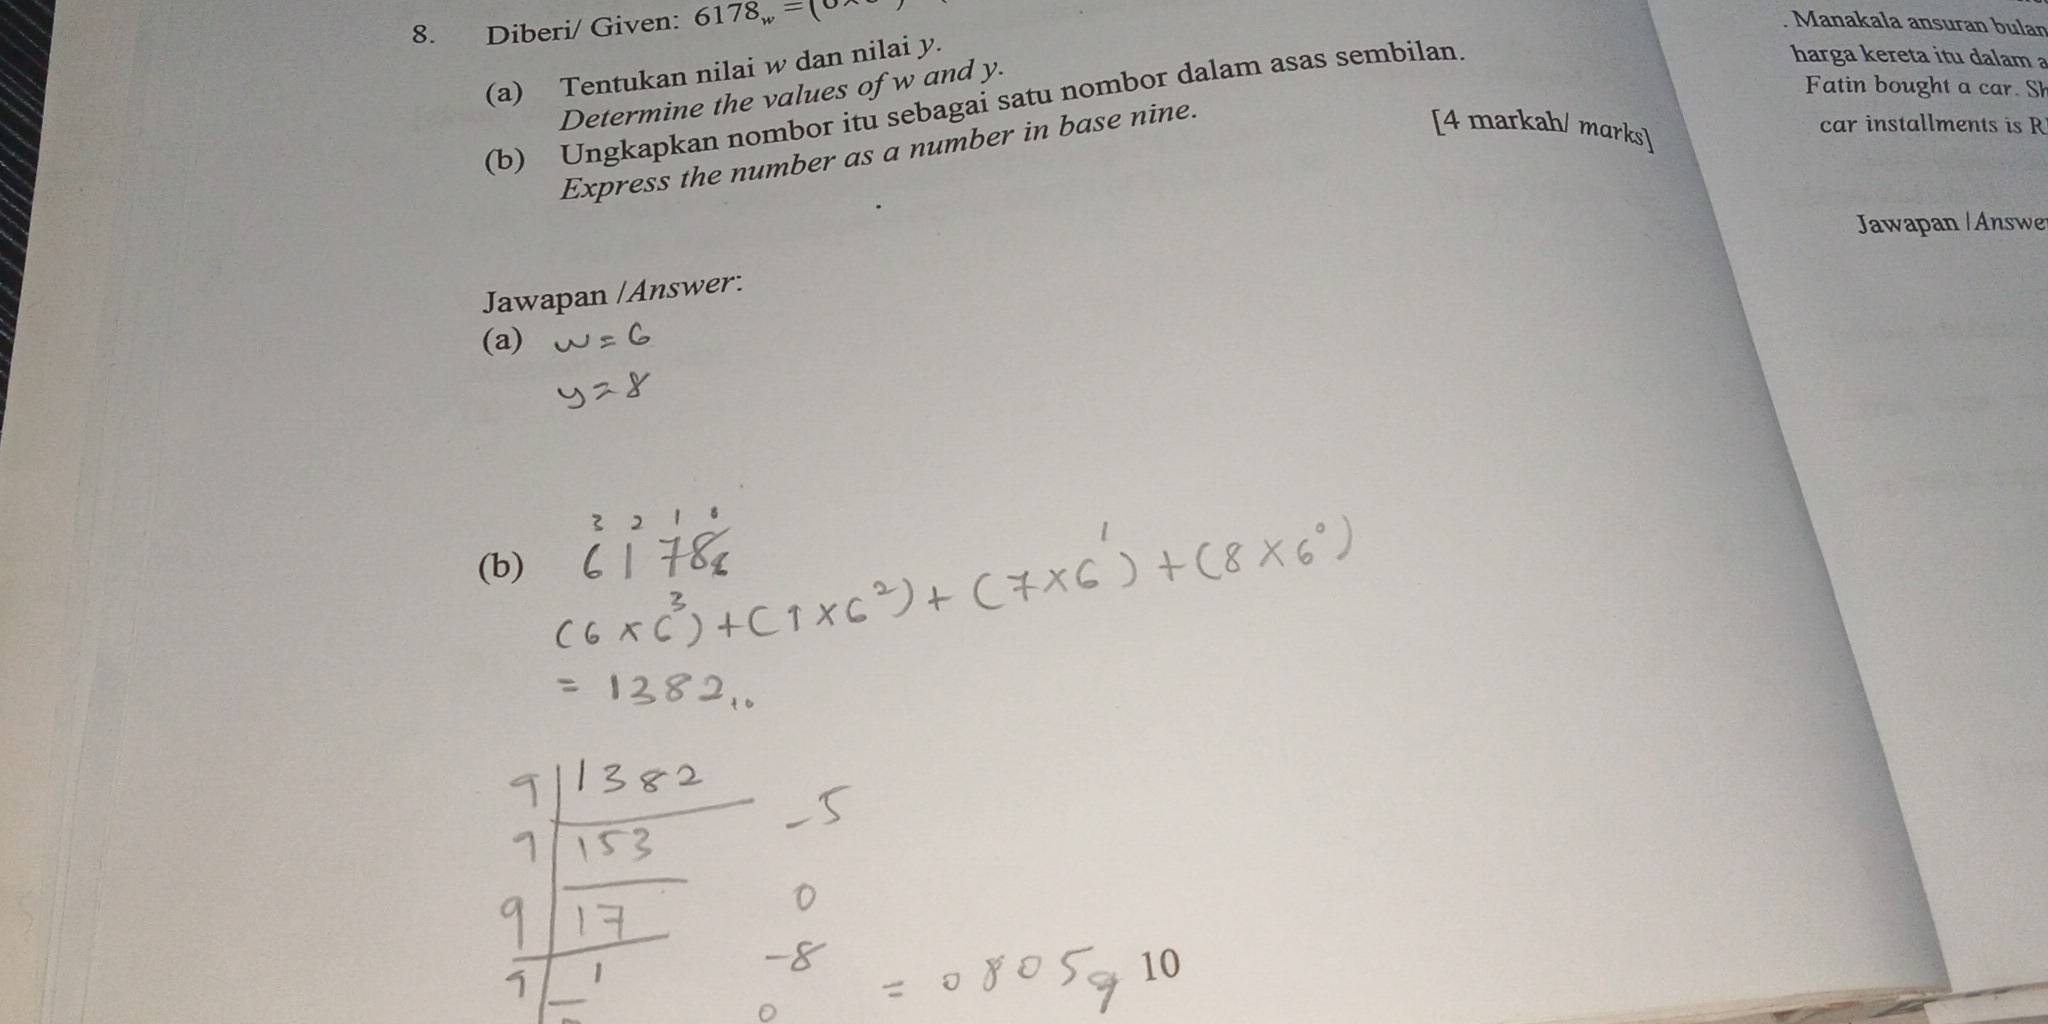 8. Diberi/ Given: 6178w =(
(a) Tentukan nilai w dan nilai y.
Determine the values of w and y.
(b) Ungkapkan nombor itu sebagai satu nombor dalam asas sembilan.
Express the number as a number in base nine.
[4 markah/ marks]
Jawapan /Answer:
(a) w = 6
y = 8
3 2 1 0
(b) 6178₆
(6 × 6³) + (1 × 6²) + (7 × 6¹) + (8 × 6⁰)
= 1382₁₀
9 1382
9 153 - 5
9 17 0
9 1 - 8
0
= 0805₉
10
. Manakala ansuran bulan
harga kereta itu dalam a
Fatin bought a car. Sh
car installments is R
Jawapan /Answer